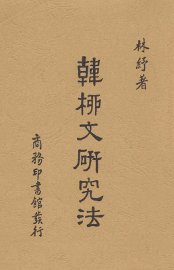 林紓著
韓柳文研究法
商務印書館發行